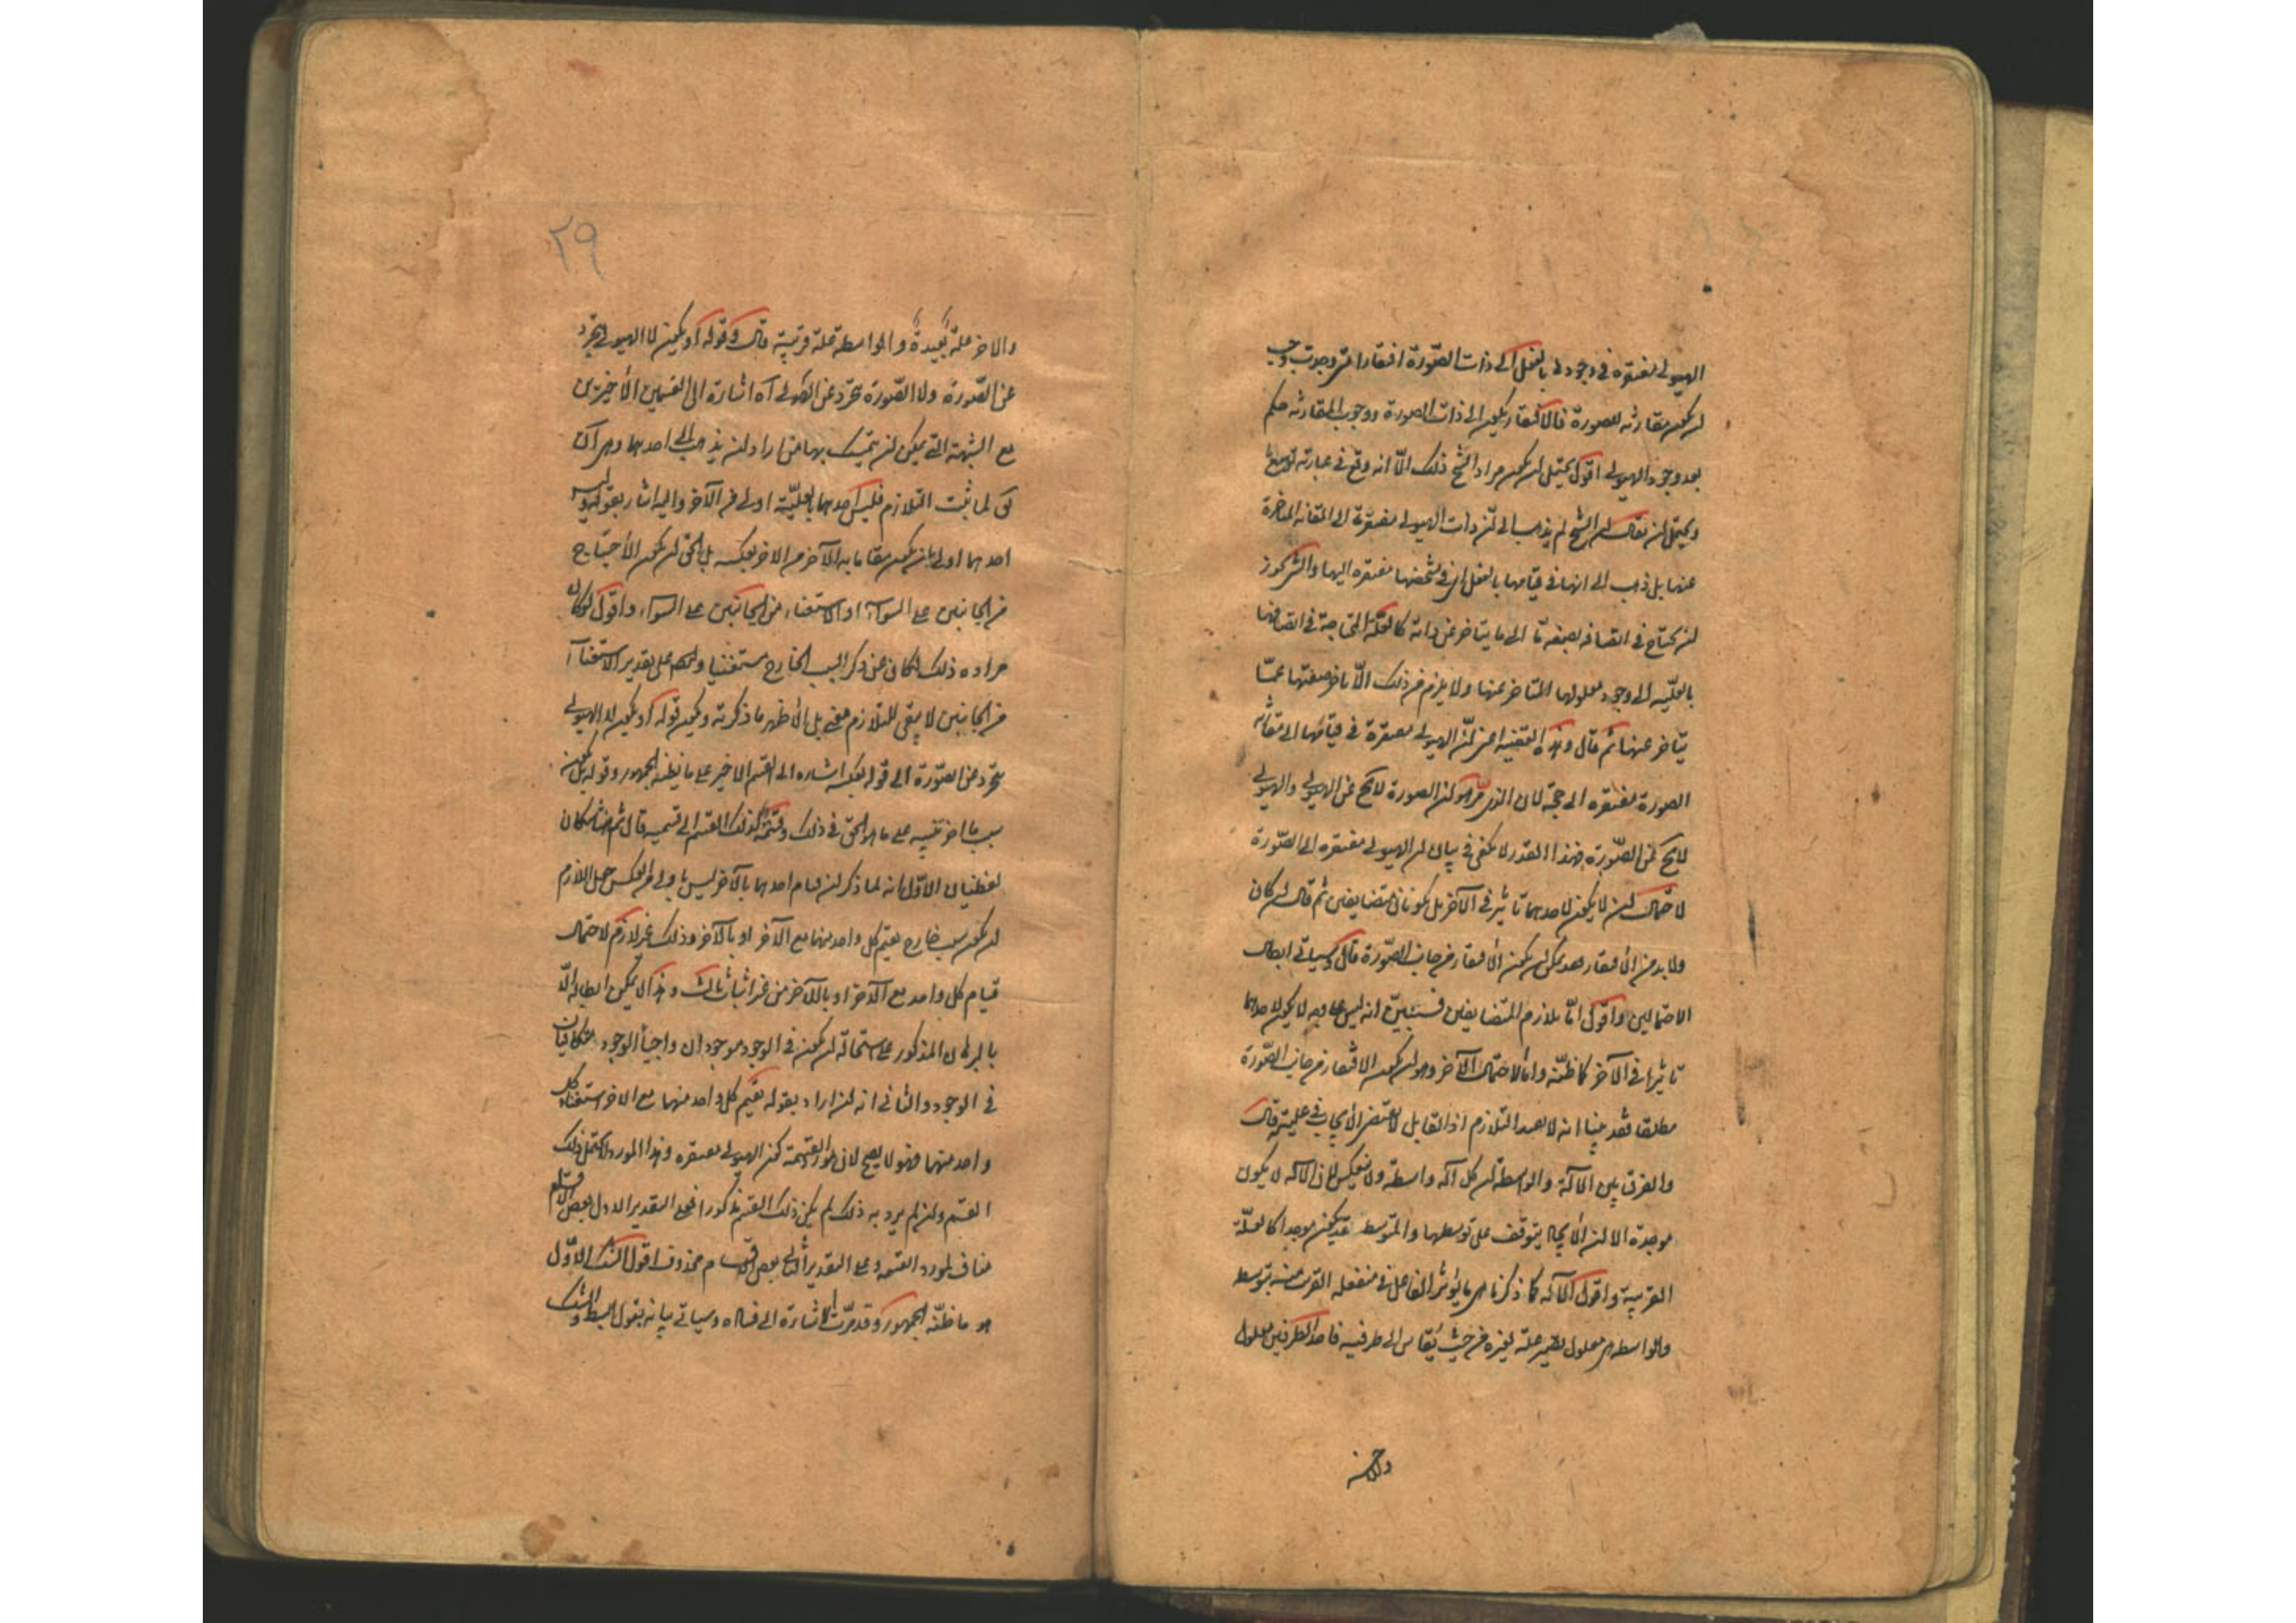 الهيولى مفتقرة فى وجودها بالفعل الى ذات الصورة افتقارا متى وجدت وجب
ان تكون مقارنة للصورة فالافتقار يكون الى ذات الصورة ووجوب المقارنة حكم
بعد وجود الهيولى اقول يحتمل ان يكون مراد الشيخ ذلك الّا انه وقع فى عبارته توسع
ويحتمل ان يقال ان الشيخ لم يذهب الى انّ ذات الهيولى مفتقرة الى المقارنة المتاخرة
عنها بل ذهب الى انها فى قيامها بالفعل اى فى تشخصها مفتقرة اليها والشىء يجوز
ان يحتاج فى اتصافه بصفة ما الى ما يتاخر عن ذاته كالعلّة المحتاجة فى اتصافها
بالعلّيه الى وجود معلولها المتاخر عنها ولا يلزم من ذلك الّا تاخر صفتها عمّا
يتاخر عنها ثم قال وهذه القضية اعنى انّ الهيولى مفتقرة فى قيامها الى مقارنة
الصورة مفتقره الى حجة لان الذى مرّ هو ان الصورة لا تخ عن الهيولى والهيولى
لا تخ عن الصّورة فهذا القدر لا يكفى فى بيان ان الهيولى مفتقره الى الصّورة
لاحتمال ان لا يكون لاحدهما تاثير فى الآخر بل يكونان متضايفين ثم قال ان كان
ولا بد من الافتقار فقد يمكن ان يكون الافتقار من جانب الصّورة قال وسياتى ابطال
الاحتمالين واقول امّا تلازم المتضايفين فستبيّن انه ليس على وجه لا يكون لاحدهما
تاثير فى الآخر كما ظنّه واما الاحتمال الآخر وهو ان يكون الافتقار من جانب الصّورة
مطلقا فقد بينا انه لا يفيد التلازم اذ القابل لا يقتضى الايجاب فى علّيته قال
والفرق بين الآلة والواسطة ان كل آلة واسطة ولا ينعكس لان الآلة لا يكون
موجدة الا ان الايجاد يتوقف على توسطها والمتوسط قد يكون موجدا كالعلّة
القريبة واقول الآلة كما ذكرنا هى ما يؤثر الفاعل فى منفعله القريب منه بتوسطه
والواسطه هى معلول يصير علّة لغيره من حيث يقاس الى طرفيه فاحد الطرفين معلول
والاخر
٢٩
والاخر علة بعيدة والواسطة علة قريبة قال وقوله او يكون لا الهيولى تتجرد
عن الصّورة ولا الصّورة تتجرد عن الهيولى آه اشارة الى القسمين الاخيرين
مع الشبهة التى يمكن ان يتمسك بها من اراد ان يذهب الى احدهما وهى ان
لما ثبت التلازم فليس احدهما بالعلّيّة اولى من الآخر واليه اشار بقوله وليس
احدهما اولى بان يكون مقاما به الآخر من الاخر بعكسه بل الحق ان يكون الاحتياج
من الجانبين على السواء او الاستغناء من الجانبين على السواء واقول لو كان
مراده ذلك لكان عن ذكر السبب الخارج مستغنيا وايضا على تقدير الاستغناء
من الجانبين لا يبقى للتلازم معنى بل الاظهر ما ذكرته ويكون قوله او يكون لا الهيولى
تتجرد عن الصّورة الى قوله بعكسه اشاره الى القسم الاخير على ما يظنه الجمهور وقوله بل يكون
سبب ما اخر تنبيه على ما هو الحق فى ذلك وقسمة لذلك القسم الى قسميه قال ثم هنا شكان
لفظيان الاوّل انه لما ذكر ان قيام احدهما بالآخر ليس باولى من العكس جعل اللازم
ان يكون سبب خارج يقيم كل واحد منهما مع الآخر او بالآخر وذلك غير لازم لاحتمال
قيام كل واحد مع الآخر او بالآخر من غير اثبات ثالث وهذا لا يمكن ابطاله الّا
بالبرهان المذكور على استحالة ان يكون فى الوجود موجودان واجبا الوجود متكافيان
فى الوجود والثانى انه ان اراد بقوله يقيم كل واحد منهما مع الاخر استغناء كل
واحد منهما فهو لا يصح لان مورد القسمة كون الهيولى مفتقره وهذا المورد لا يحتمل ذلك
القسم وان لم يرد به ذلك لم يكن ذلك القسم مذكورا فعلى التقدير الاول بعض الاقسام
مناف لمورد القسمة وعلى التقدير الثانى بعض الاقسام محذوف اقول الشك الاوّل
هو ما ظنّه الجمهور وقد مرّت الاشارة الى فساده وسياتى بيانه بقول ابسط والشك